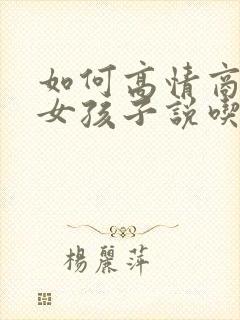 如何高情商
女孩子說喫
楊麗萍